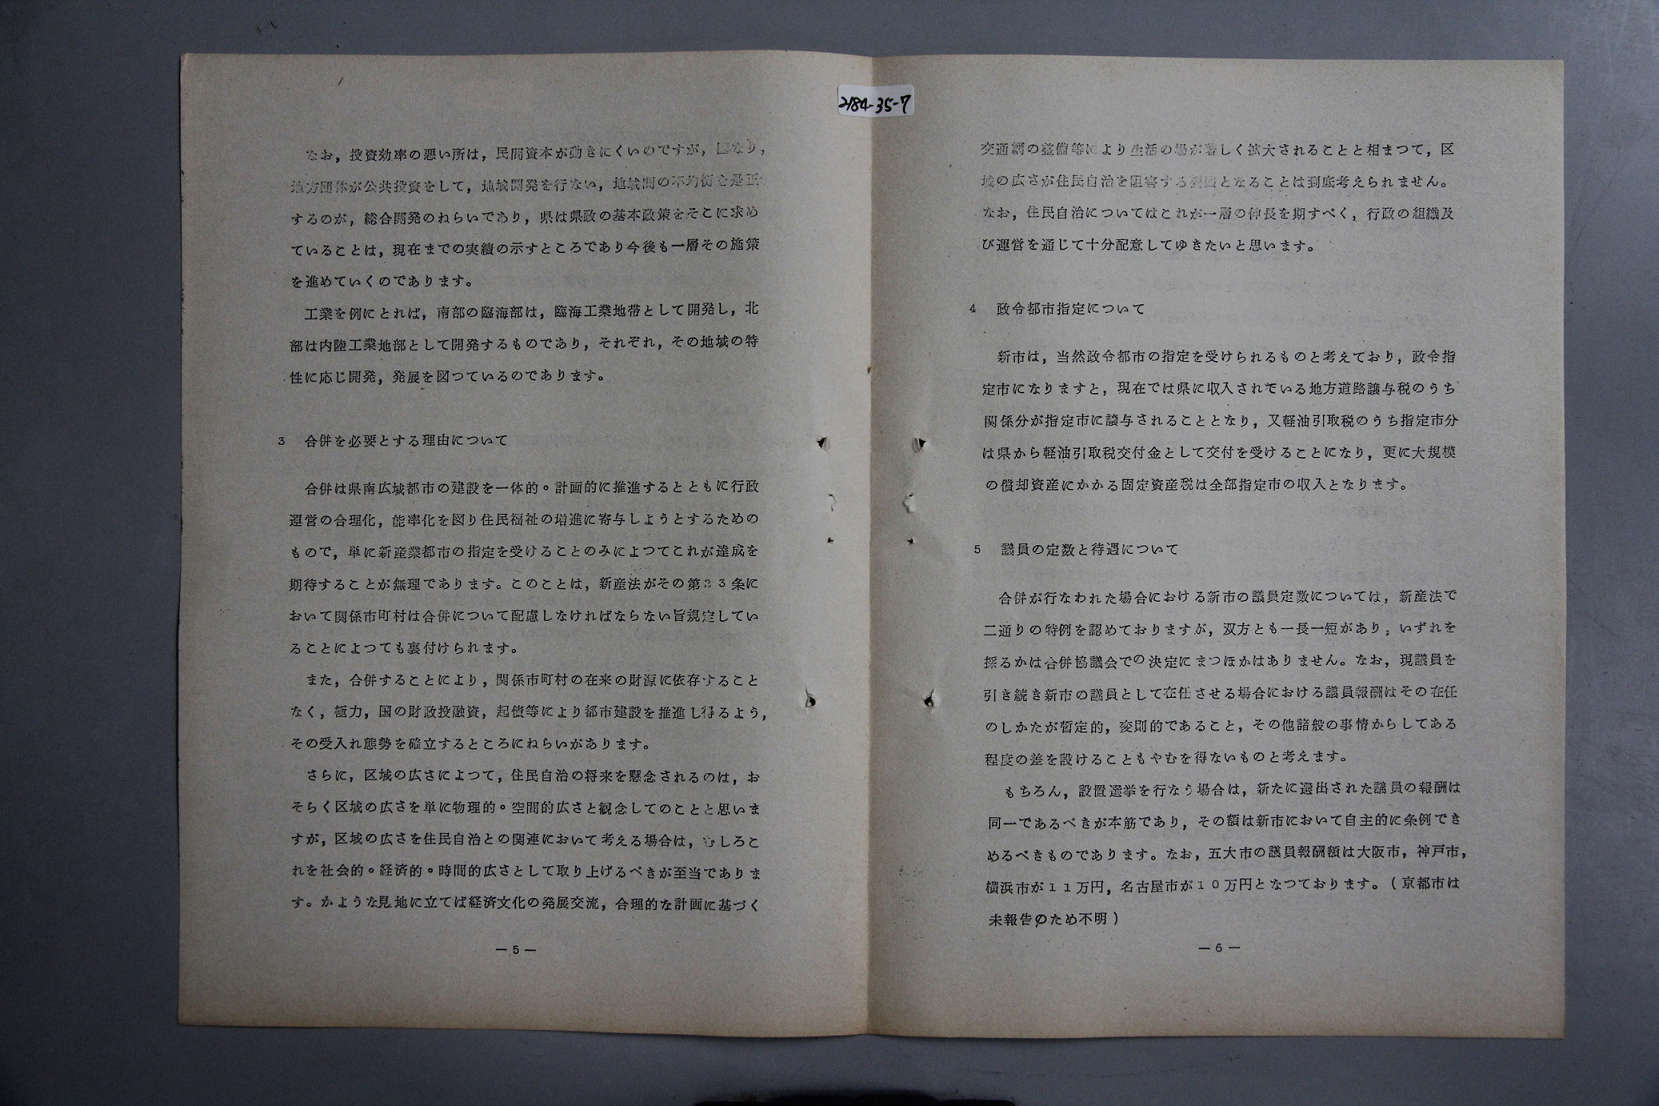 2184-35-7
なお，投資効率の悪い所は，民間資本が動きにくいのですが，国なり，
地方団体が公共投資をして，地域開発を行ない，地域間の不均衡を是正
するのが，総合開発のねらいであり，県は県政の基本政策をそこに求め
ていることは，現在までの実績の示すところであり今後も一層その施策
を進めていくのであります。
工業を例にとれば，南部の臨海部は，臨海工業地帯として開発し，北
部は内陸工業地部として開発するものであり，それぞれ，その地域の特
性に応じ開発，発展を図つているのであります。
3　合併を必要とする理由について
合併は県南広域都市の建設を一体的。計画的に推進するとともに行政
運営の合理化，能率化を図り住民福祉の増進に寄与しようとするための
もので，単に新産業都市の指定を受けることのみによつてこれが達成を
期待することが無理であります。このことは，新産法がその第23条に
おいて関係市町村は合併について配慮しなければならない旨規定してい
ることによつても裏付けられます。
また，合併することにより，関係市町村の在来の財源に依存すること
なく，強力，国の財政投融資，起債等により都市建設を推進し得るよう，
その受入れ態勢を確立するところにねらいがあります。
さらに，区域の広さによつて，住民自治の将来を懸念されるのは，お
そらく区域の広さを単に物理的。空間的広さと観念してのことと思いま
すが，区域の広さを住民自治との関連において考える場合は，むしろこ
れを社会的。経済的。時間的広さとして取り上げるべきが至当でありま
す。かような見地に立てば経済文化の発展交流，合理的な計画に基づく
－5－
交通網の整備等により生活の場が著しく拡大されることと相まつて，区
域の広さが住民自治を阻害する要因となることは到底考えられません。
なお，住民自治についてはこれが一層の伸長を期すべく，行政の組織及
び運営を通じて十分配意してゆきたいと思います。
4　政令都市指定について
新市は，当然政令都市の指定を受けられるものと考えており，政令指
定市になりますと，現在では県に収入されている地方道路譲与税のうち
関係分が指定市に譲与されることとなり，又軽油引取税のうち指定市分
は県から軽油引取税交付金として交付を受けることになり，更に大規模
の償却資産にかかる固定資産税は全部指定市の収入となります。
5　議員の定数と待遇について
合併が行なわれた場合における新市の議員定数については，新産法で
二通りの特例を認めておりますが，双方とも一長一短があり，いずれを
採るかは合併協議会での決定にまつほかはありません。なお，現議員を
引き続き新市の議員として在任させる場合における議員報酬はその在任
のしかたが暫定的，変則的であること，その他諸般の事情からしてある
程度の差を設けることもやむを得ないものと考えます。
もちろん，設置選挙を行なう場合は，新たに選出された議員の報酬は
同一であるべきが本筋であり，その額は新市において自主的に条例でき
めるべきものであります。なお，五大市の議員報酬額は大阪市，神戸市，
横浜市が11万円，名古屋市が10万円となつております。（京都市は
未報告のため不明）
－6－